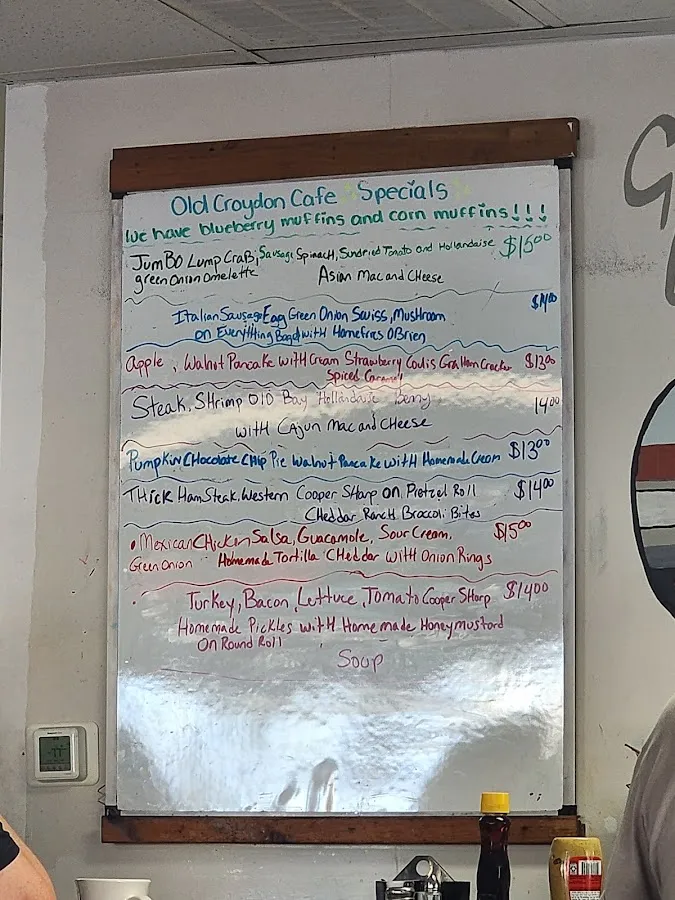 Old Croydon Cafe Specials
We have blueberry muffins and corn muffins!!!
Jumbo Lump Crab, Sausage Spinach, Sundried Tomato and Hollandaise $15⁰⁰
green Onion Omelette Asian Mac and Cheese
$14⁰⁰
Italian Sausage Egg Green Onion Swiss, Mushroom
on Everything Bagel with Homefries OBrien
Apple, Walnut Pancake with Cream Strawberry Coulis Graham Cracker $13⁰⁰
Spiced Caramel
Steak, Shrimp Old Bay Hollandaise Benny 14⁰⁰
with Cajun Mac and Cheese
Pumpkin Chocolate Chip Pie Walnut Pancake with Homemade Cream $13⁰⁰
Thick Ham Steak, Western Cooper Sharp on Pretzel Roll $14⁰⁰
Cheddar Ranch Broccoli Bites
• Mexican Chicken Salsa, Guacamole, Sour Cream, $15⁰⁰
Green Onion Homemade Tortilla Cheddar with Onion Rings
Turkey, Bacon, Lettuce, Tomato Cooper Sharp $14⁰⁰
Homemade Pickles with Homemade Honeymustard
On Round Roll
Soup